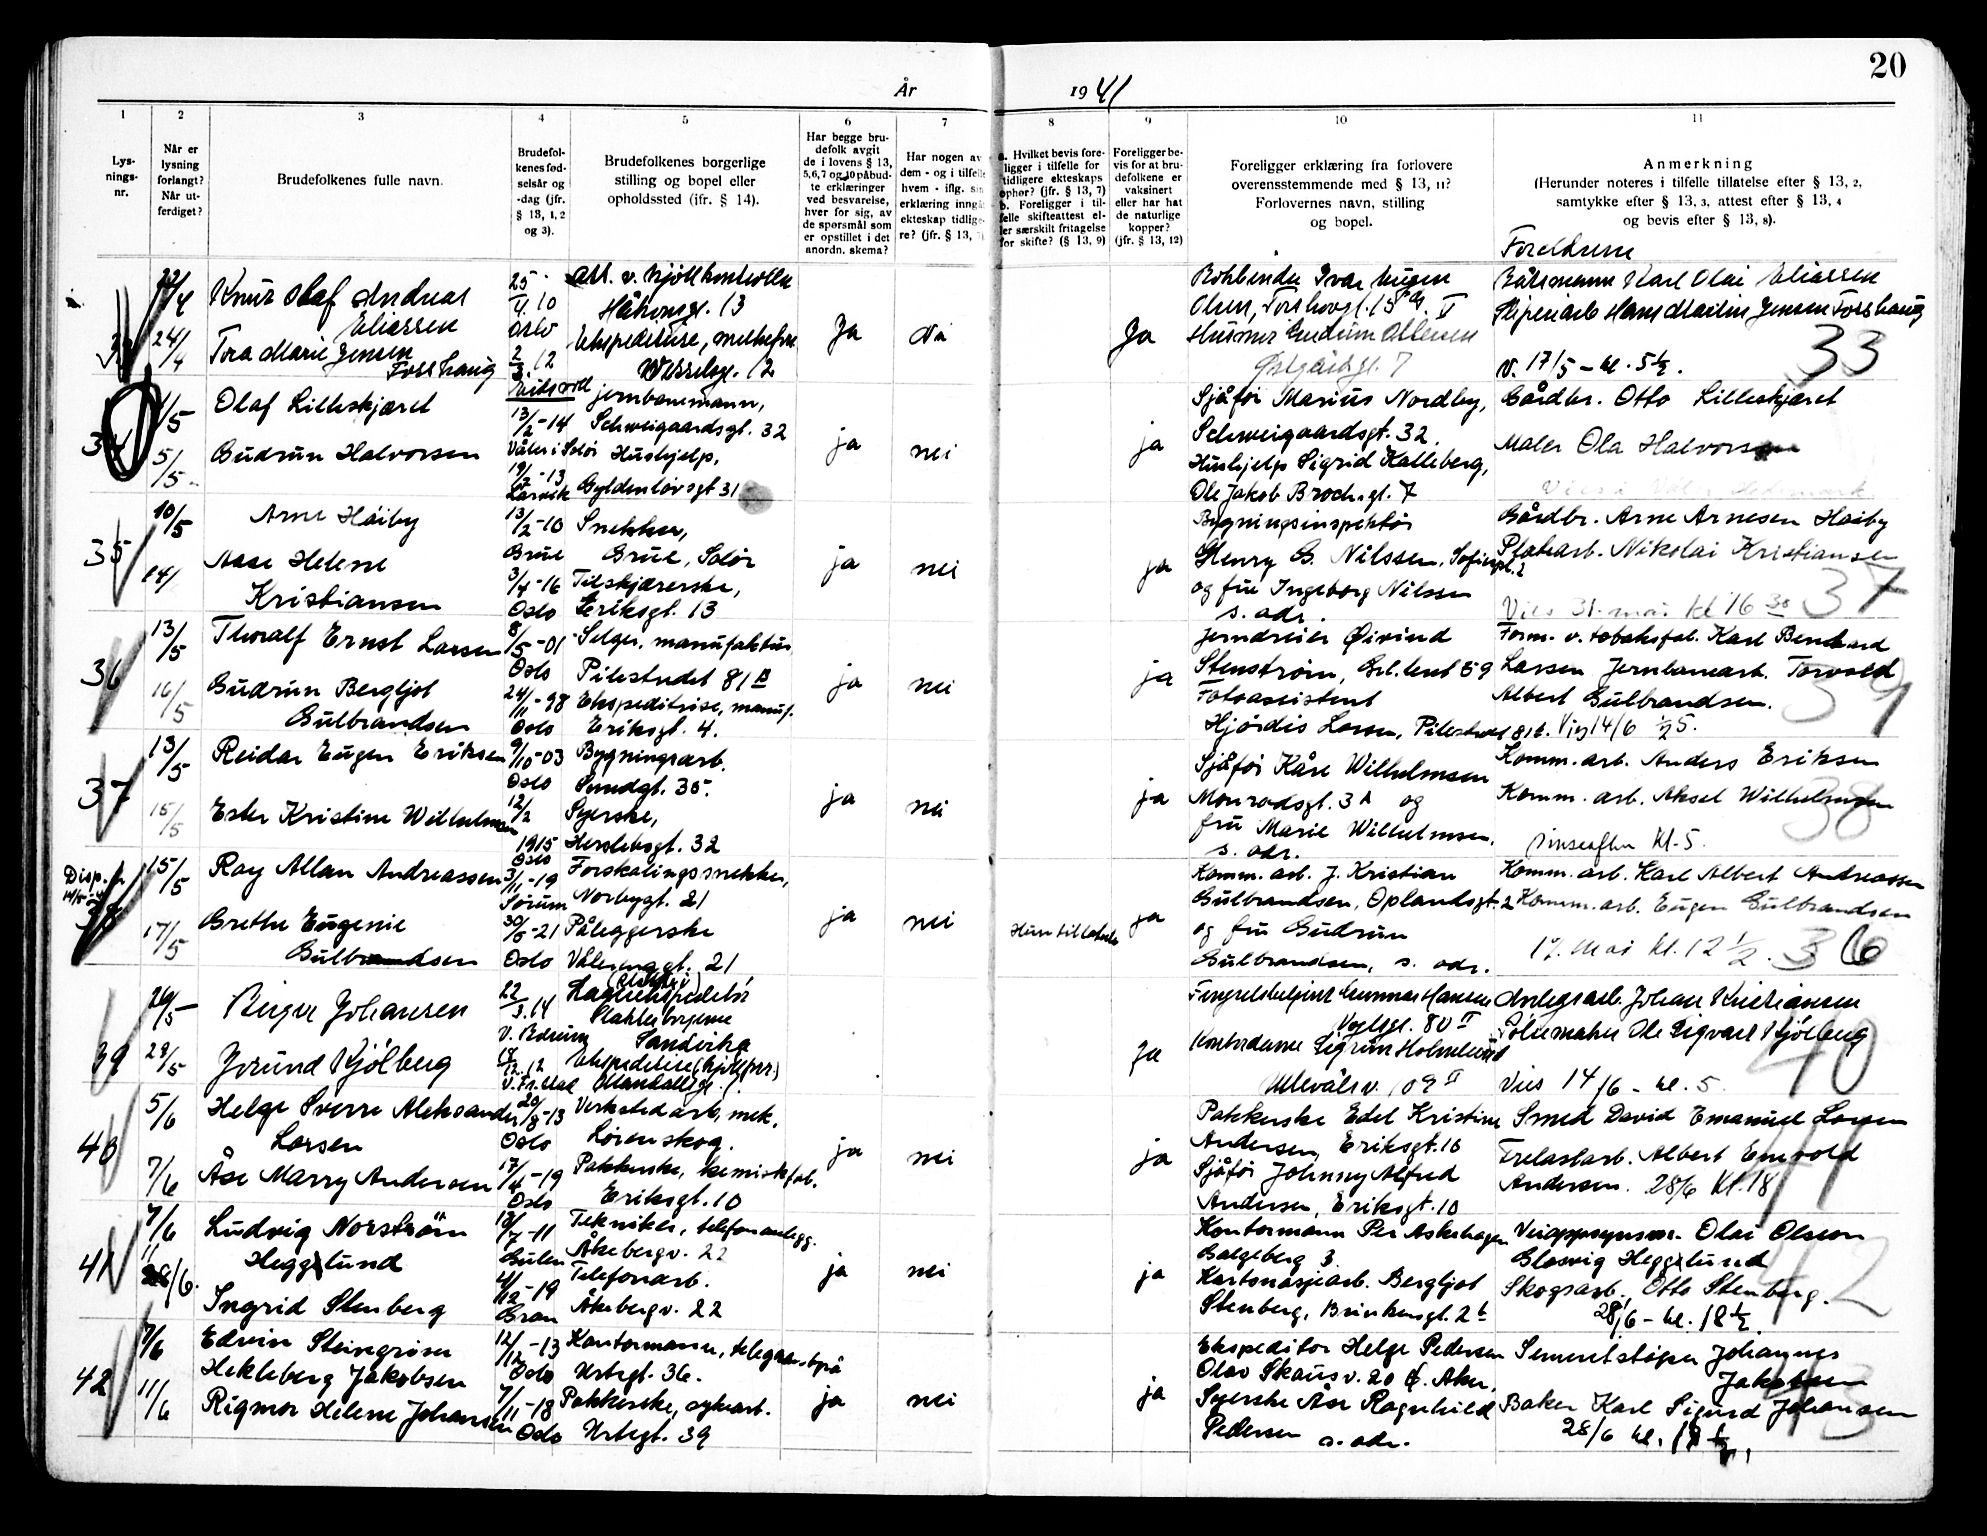 20
År
1941
1
2
3
4
5
6
7
8
9
10
11
Lys-
nings-
nr.
Når er
lysning
forlangt?
Når ut-
ferdiget?
Brudefolkenes fulle navn.
Brudefol-
kenes fød-
selsår og
-dag (jfr.
§ 13, 1, 2
og 3).
Brudefolkenes borgerlige
stilling og bopel eller
opholdssted (ifr. § 14).
Har begge bru-
defolk avgit
de i lovens § 13,
5,6,7 og 10 påbud-
te erklæringer
ved besvarelse,
hver for sig, av
de spørsmål som
er opstillet i det
anordn. skema?
Har nogen av
dem - og i tilfelle
hvem - iflg. sin
erklæring inngå
ekteskap tidlige-
re? (jfr. § 13,
a. Hvilket bevis fore-
ligger i tilfelle for
tidligere ekteskaps
ophør? (jfr. § 13, 7)
b. Foreligger i til-
felle skifteattest el-
ler særskilt fritagelse
for skifte? (§ 13, 9)
Foreligger be-
vis for at bru-
defolkene er
vaksinert
eller har hat
de naturlige
kopper?
(jfr. § 13, 12)
Foreligger erklæring fra forlovere
overensstemmende med § 13, 11?
Forlovernes navn, stilling
og bopel.
Anmerkning
(Herunder noteres i tilfelle tillatelse efter § 13, 2,
samtykke efter § 13, 3, attest efter § 13, 4
og bevis efter § 13, 8).
Foreldrene
24/4
Knut Olaf Andreas
Eliassen
Tora Marie Jensen
Forshaug
25
4.10
Oslo
2
3.12
v. kjøttkontrollen
Håkonsgt. 13
Ekspeditrise,
Wesselsgt. 12
Ja
Ja
Bokbinder Ivar Eugen
Olsen,
Østgårdsgt. 7
Båtsmann Karl Olai Eliassen
Hans Martin Jensen Forshaug
v. 17/5 - kl. 5 1/2.
33
34
1/5
5/5
Olaf Lilleskjæret
Gudrun Halvorsen
13/2-14
Våler i Solør
19/2-13
Larvik
jernbanemann,
Schweigaardsgt. 32
Hushjelp,
Gyldenløvsgt 31
ja
nei
ja
Sjåfør Marius Nordby,
Schweigaardsgt. 32.
Hushjelp Sigrid Kalleberg,
Ole Jakob Brochsgt. 7
Gårdbr. Otto Lilleskjæret
Maler Ola Halvorsen
35
10/5
14/
Arne Haiby
Aase Helene
Kristiansen
13/2-10
Grue
3/4-16
Oslo
Snekker,
Grue, Solør
Tilskjærerske,
Eriksgt. 13
ja
nei
ja
Bygningsinspektør
Henry G. Nilssen, Sofienpl. 2
og fru Ingeborg Nilssen
s. adr.
Gårdbr. Arne Arnesen Haiby
Platearb. Nikolai Kristiansen
Vies 31. mai kl 16 30
37
36
13/5
16/5
Thoralf Ernst Larsen
Gudrun Bergljot
Gulbrandsen
8/5-01
Oslo
24/11-98
Oslo
Selger, manufaktur
Pilestredet 81 B
Ekspeditrise, manuf.
Eriksgt. 4.
ja
nei
ja
Jerndreier Øivind
Stenstrøm,
Fotoassistent
Hjørdis Larsen, Pilestredet 81 b.
Form. v. tobaksfab. Karl Bernhard
Larsen Jernbanearb. Torvald
Albert Gulbrandsen.
Vies 14/6 1/2 5.
39
37
13/5
15/5
Reidar Eugen Eriksen
Ester Kristine Wilhelmsen
9/10-03
Oslo
12/2
1915
Oslo
Bygningsarb.
Sundgt. 35.
Syerske,
Herslebsgt. 32
ja
nei
ja
Sjåfør Kåre Wilhelmsen
Monradsgt. 3 A og
fru Marie Wilhelmsen,
s. adr.
Komm. arb. Anders Eriksen
Komm. arb. Aksel Wilhelmsen
Pinseaften kl. 5.
38
38
15/5
17/5
Roy Allan Andreassen
Grethe Eugenie
Gulbrandsen
3/11-19
Sørum
30/5-21
Oslo
Forskalingssnekker,
Norbygt. 21
Påleggerske
Vålerenggt. 21
ja
nei
ja
Komm. arb. J. Kristian
Gulbrandsen, Oplandsgt. 2
og fru Gudrun
Gulbrandsen, s. adr.
Komm. arb. Karl Albert Andreassen
Komm. arb. Eugen Gulbrandsen
17. mai kl. 12 1/2.
36
39
26/5
28/5
Birger Johansen
Jorund Kjølberg
22
3.14
v. Bærum
Lagerekspeditør
Sandvika
Ja
Fengselsbetjent Gunnar Hansen
Vogtsgt. 80 II
Kontordame Sigrun
Ullevålsv. 109 II
Anlegsarb. Johan Kristiansen
Ole Sigvart Kjølberg
Vies 14/6 - kl. 5
40
40
5/6
7/6
Helge Sverre Aleksander
Larsen
Åse Marry Andersen
20/8-13
Oslo
17/4-19
Oslo
Verkstedarb, mek.
Lørenskog.
Pakkerske, kemisk fab.
Eriksgt. 10
ja
nei
ja
Pakkerske Edel Kristine
Andersen, Eriksgt. 10
Sjåfør Johnny Alfred
Andersen, Eriksgt. 10
Smed David Emanuel Larsen
Trelastarb. Albert Enevold
Andersen. 28/6 kl. 18
41
41
7/6
11/6.
Ludvig Norstrøm
Hegglund
Ingrid Stenberg
12/7-11
Gulen
4/12-19
Gran
Tekniker, telefonanlegg.
Åkebergv. 22
Telefonarb.
Åkebergv. 22
ja
nei
ja
Kontormann Per Askehagen
Galgeberg 3
Kartonasjearb. Bergljot
Stenberg, Brinkensgt. 2 b
Veioppsynsm. Olai Olsson
Glasvig Hegglund
Skogsarb. Otto Stenberg.
28/6 - kl. 18 1/2.
42
42
7/6
11/6
Edvin Steingrim
Hekleberg Jakobsen
Rigmor Helene Johansen
12/12-13
Oslo
7/11-18
Oslo
Kontormann, telegrambyrå
Urtegt. 36.
Pakkerske, sykearb.
Urtegt. 39
ja
nei
ja
Ekspeditør Helge Pedersen
Olav Skaus v. 20 Ø. Aker,
Syerske Åse Ragnhild
Pedersen s. adr.
Sementstøper Johannes
Jakobsen
Baker Karl Sigurd Johansen
28/6 kl.
43